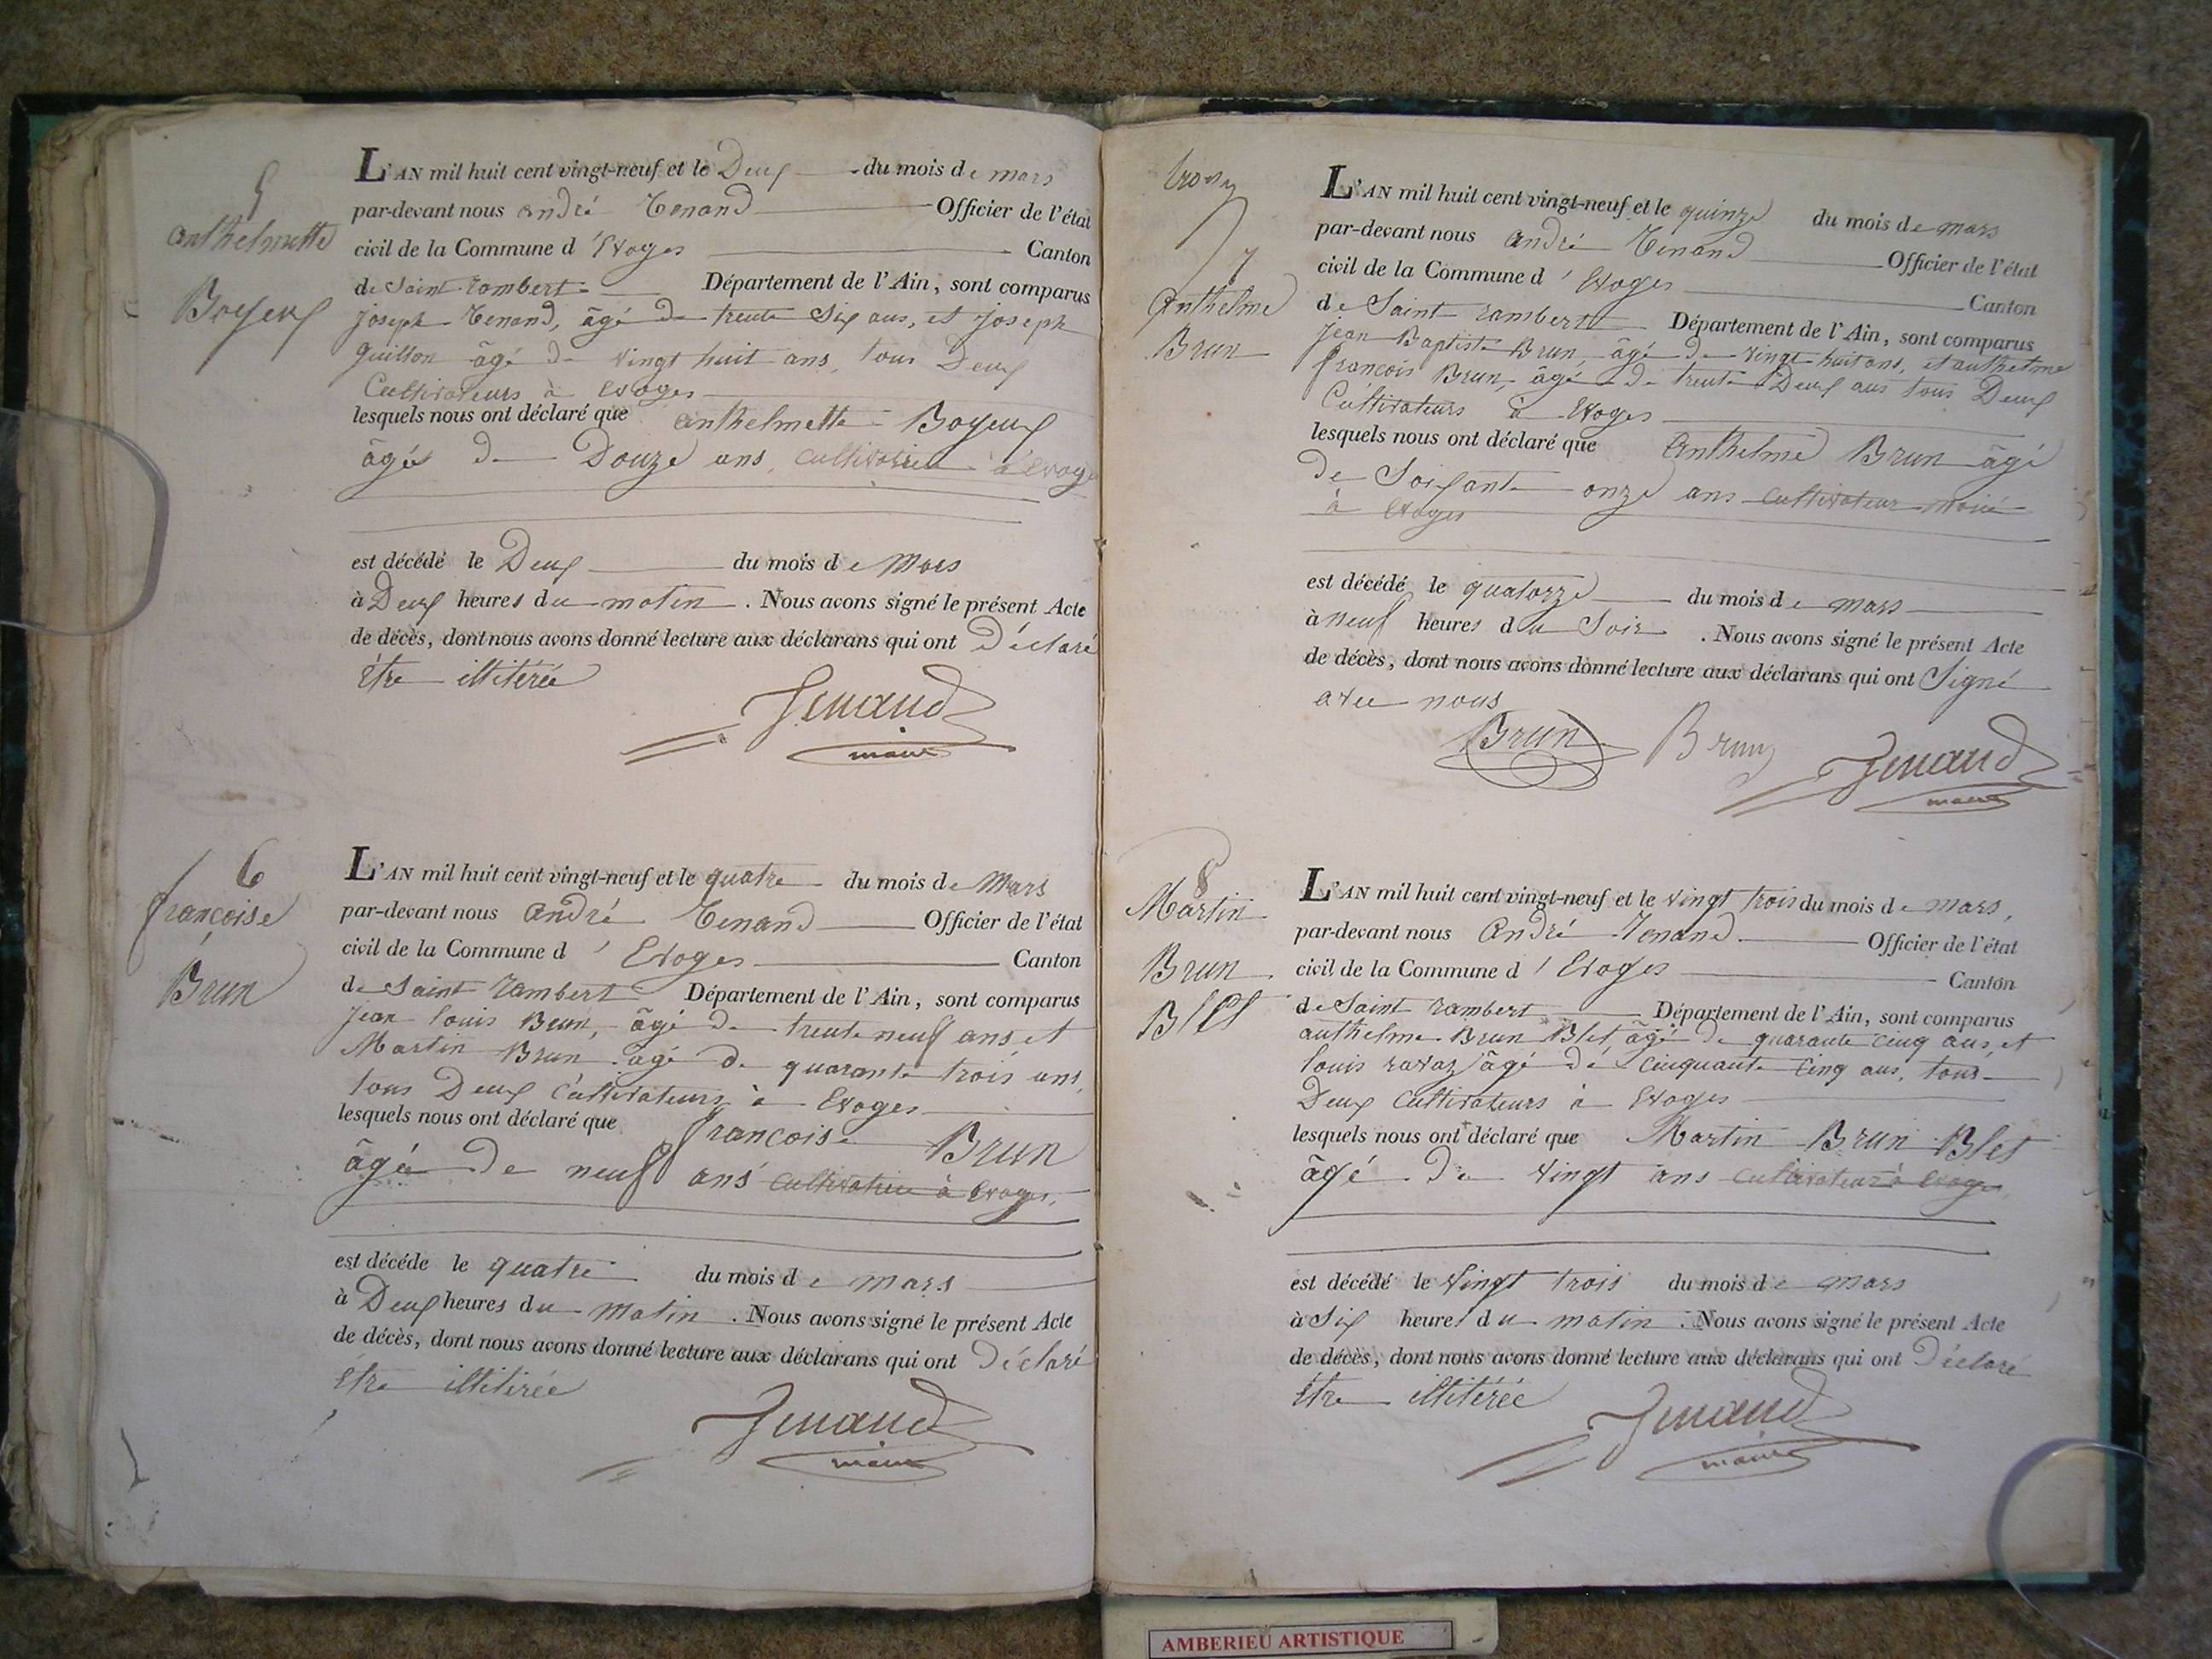 5
anthelmette
Boyeux
L'AN mil huit cent vingt-neuf et le Deux du mois de mars
par-devant nous andré Tenand Officier de l'état
civil de la Commune d'Evoges Canton
de Saint rambert Département de l'Ain, sont comparus
joseph Tenand, âgé de trente Six ans, et joseph
guillon âgé de vingt huit ans, tous Deux
Cultivateurs à Evoges
lesquels nous ont déclaré que anthelmette Boyeux
âgée de Douze ans, cultivatrice à Evoges
est décédé le Deux du mois de Mars
à Deux heures du matin. Nous avons signé le présent Acte
de décès, dont nous avons donné lecture aux déclarans qui ont Déclaré
être illitérée
Tenand
maire
6
françoise
Brun
L'AN mil huit cent vingt-neuf et le quatre du mois de Mars
par-devant nous andré Tenand Officier de l'état
civil de la Commune d'Evoges Canton
de Saint rambert Département de l'Ain, sont comparus
Jean louis Brun, âgé de trente neuf ans et
Martin Brun âgé de quarante trois ans,
tous Deux Cultivateurs à Evoges
lesquels nous ont déclaré que françoise Brun
âgée de neuf ans cultivatrice à Evoges
est décéde le quatre du mois de mars
à Deux heures du Matin. Nous avons signé le présent Acte
de décès, dont nous avons donné lecture aux déclarans qui ont Déclaré
être illitirée
Tenand
maire
7
Anthelme
Brun
L'AN mil huit cent vingt-neuf et le quinze du mois de mars
par-devant nous andré Tenand Officier de l'état
civil de la Commune d'Evoges Canton
de Saint rambert Département de l'Ain, sont comparus
Jean Baptiste Brun, âgé de vingt huit ans, et anthelme
françois Brun, âgé de trente Deux ans tous Deux
Cultivateurs à Evoges
lesquels nous ont déclaré que Anthelme Brun âgé
de Soixante onze ans cultivateur
à Evoges
est décédé le quatorze du mois de mars
à neuf heures du Soir. Nous avons signé le présent Acte
de décès, dont nous avons donné lecture aux déclarans qui ont Signé
avec nous
Brun Brun Tenand
maire
8
Martin
Brun
Blet
L'AN mil huit cent vingt-neuf et le vingt trois du mois de mars,
par-devant nous André Tenand Officier de l'état
civil de la Commune d'Evoges Canton
de Saint rambert Département de l'Ain, sont comparus
anthelme Brun Blet, âgé de quarante cinq ans, et
louis ravaz âgé de cinquante cinq ans, tous
Deux Cultivateurs à Evoges
lesquels nous ont déclaré que Martin Brun Blet
âgé de vingt ans cultivateur à Evoges
est décédé le vingt trois du mois de mars
à Six heures du matin. Nous avons signé le présent Acte
de décès, dont nous avons donné lecture aux déclarans qui ont Déclaré
être illitérée
Tenand
maire
AMBERIEU ARTISTIQUE